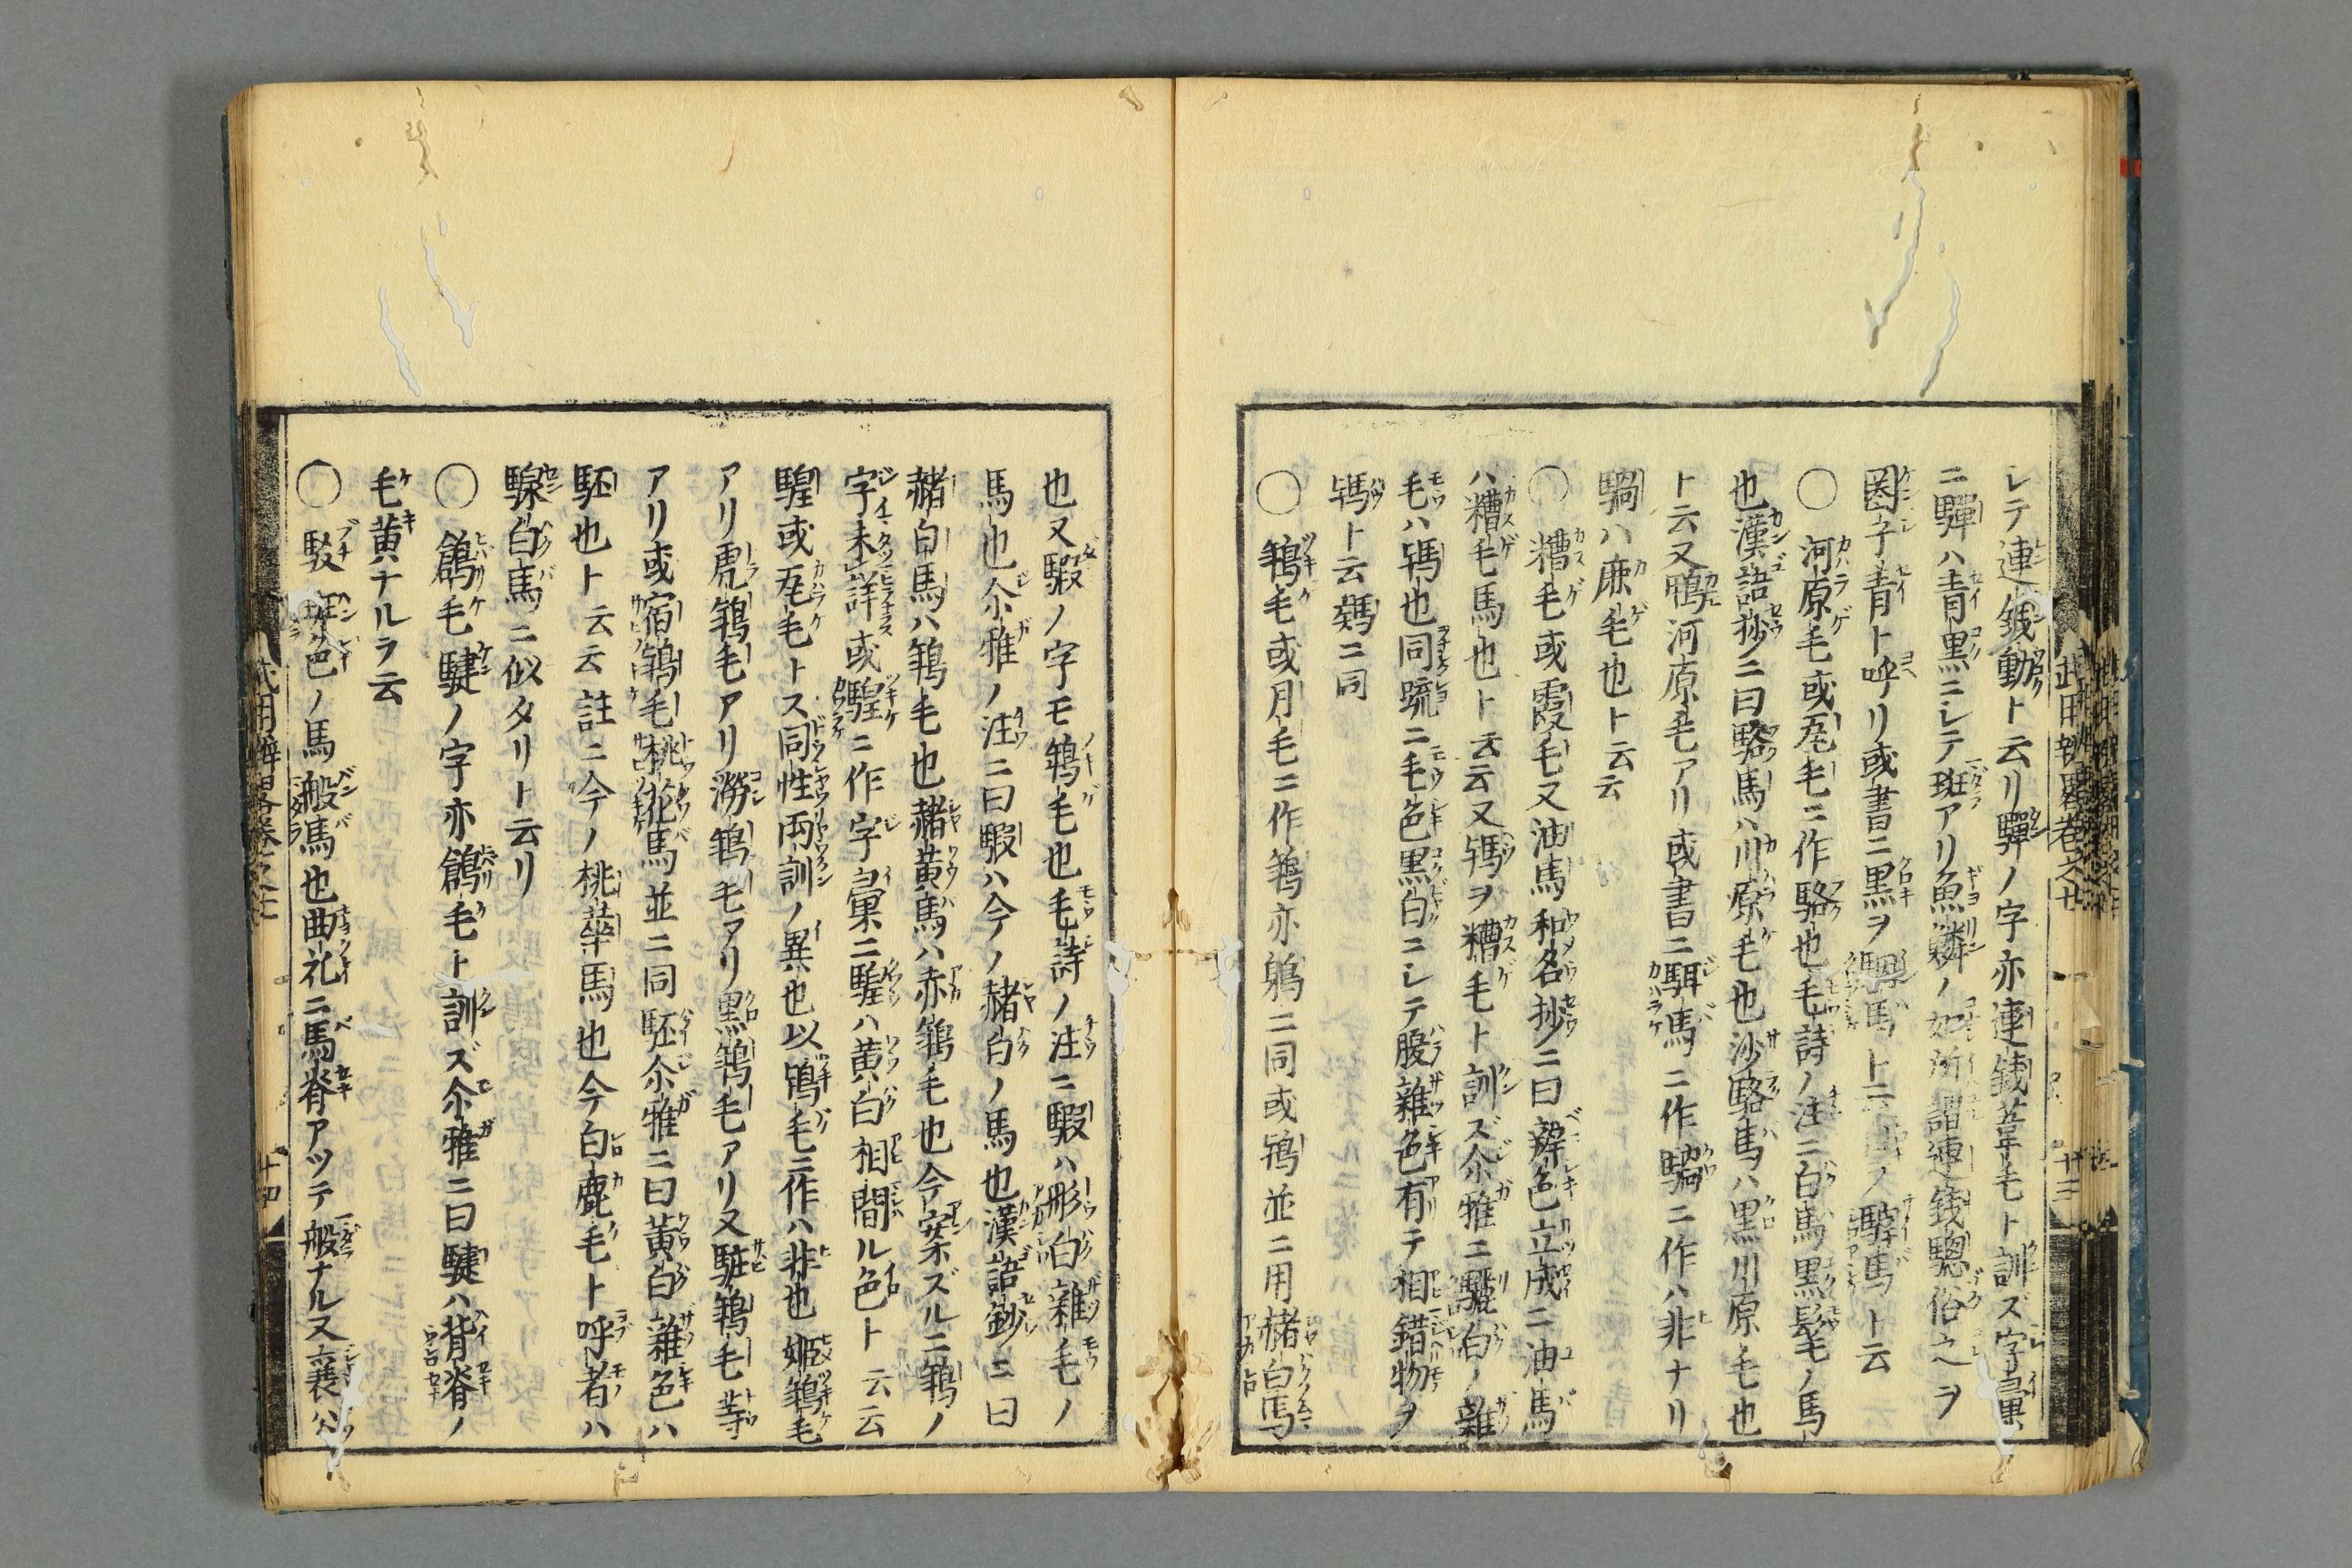 シテ連錢動ト云リ驒ノ字亦連錢葦毛ト訓ズ字彙
ニ驒ハ青黒ニシテ斑アリ魚鱗ノ如所謂連錢驄俗之ヲ
圏子青ト呼リ或書ニ黒ヲ馬ト云馬ト云
○河原毛或瓦毛ニ作駱也毛詩ノ注ニ白馬黒髦ノ馬
也漢語抄ニ曰駱馬ハ川原毛也沙駱馬ハ黒川原毛也
ト云又鴨河原毛アリ或書ニ駬馬ニ作騧ニ作ハ非ナリ
騧ハ鹿毛也ト云云
○糟毛或霞毛又油馬和名抄ニ曰辨色立成ニ油馬
ハ糟毛馬也ト云云又ヲ糟毛ト訓ズ尒雅ニ白ノ雜
毛ハ也同䟽ニ毛色黒白ニシテ腹雜色有テ相錯物ヲ
ト云ニ同
○鴾毛或月毛ニ作亦ニ同或並ニ用赭白馬
也又騢ノ字モ鴾毛也毛詩ノ注ニ騢ハ彤白雜毛ノ
馬也尒雅ノ注ニ曰騢ハ今ノ赭白ノ馬也漢語鈔ニ曰
赭白馬ハ鴾毛也赭黄馬ハ赤鴾毛也今案ズルニ鴾ノ
字未詳或騜ニ作字彙ニ騜ハ黄白相間ル色ト云云
騜或瓦毛トス同性両訓ノ異也以鴇毛ニ作ハ非也姫鴾毛
アリ虎鴾毛アリ澇鴾毛アリ黒鴾毛アリ又鴾毛等
アリ或宿鴾毛桃花馬並ニ同駓尒雅ニ曰黄白雜色ハ
駓也ト云云註ニ今ノ桃華馬也今白鹿毛ト呼者ハ
騡白馬ニ似タリト云リ
○鶬毛騝ノ字亦鶬毛ト訓ズ尒雅ニ曰騝ハ背脊ノ
毛黄ナルヲ云
○駁斑色ノ馬般馬也曲礼ニ馬脊アツテ般ナル又襄公
武用辨畧巻之七
十四